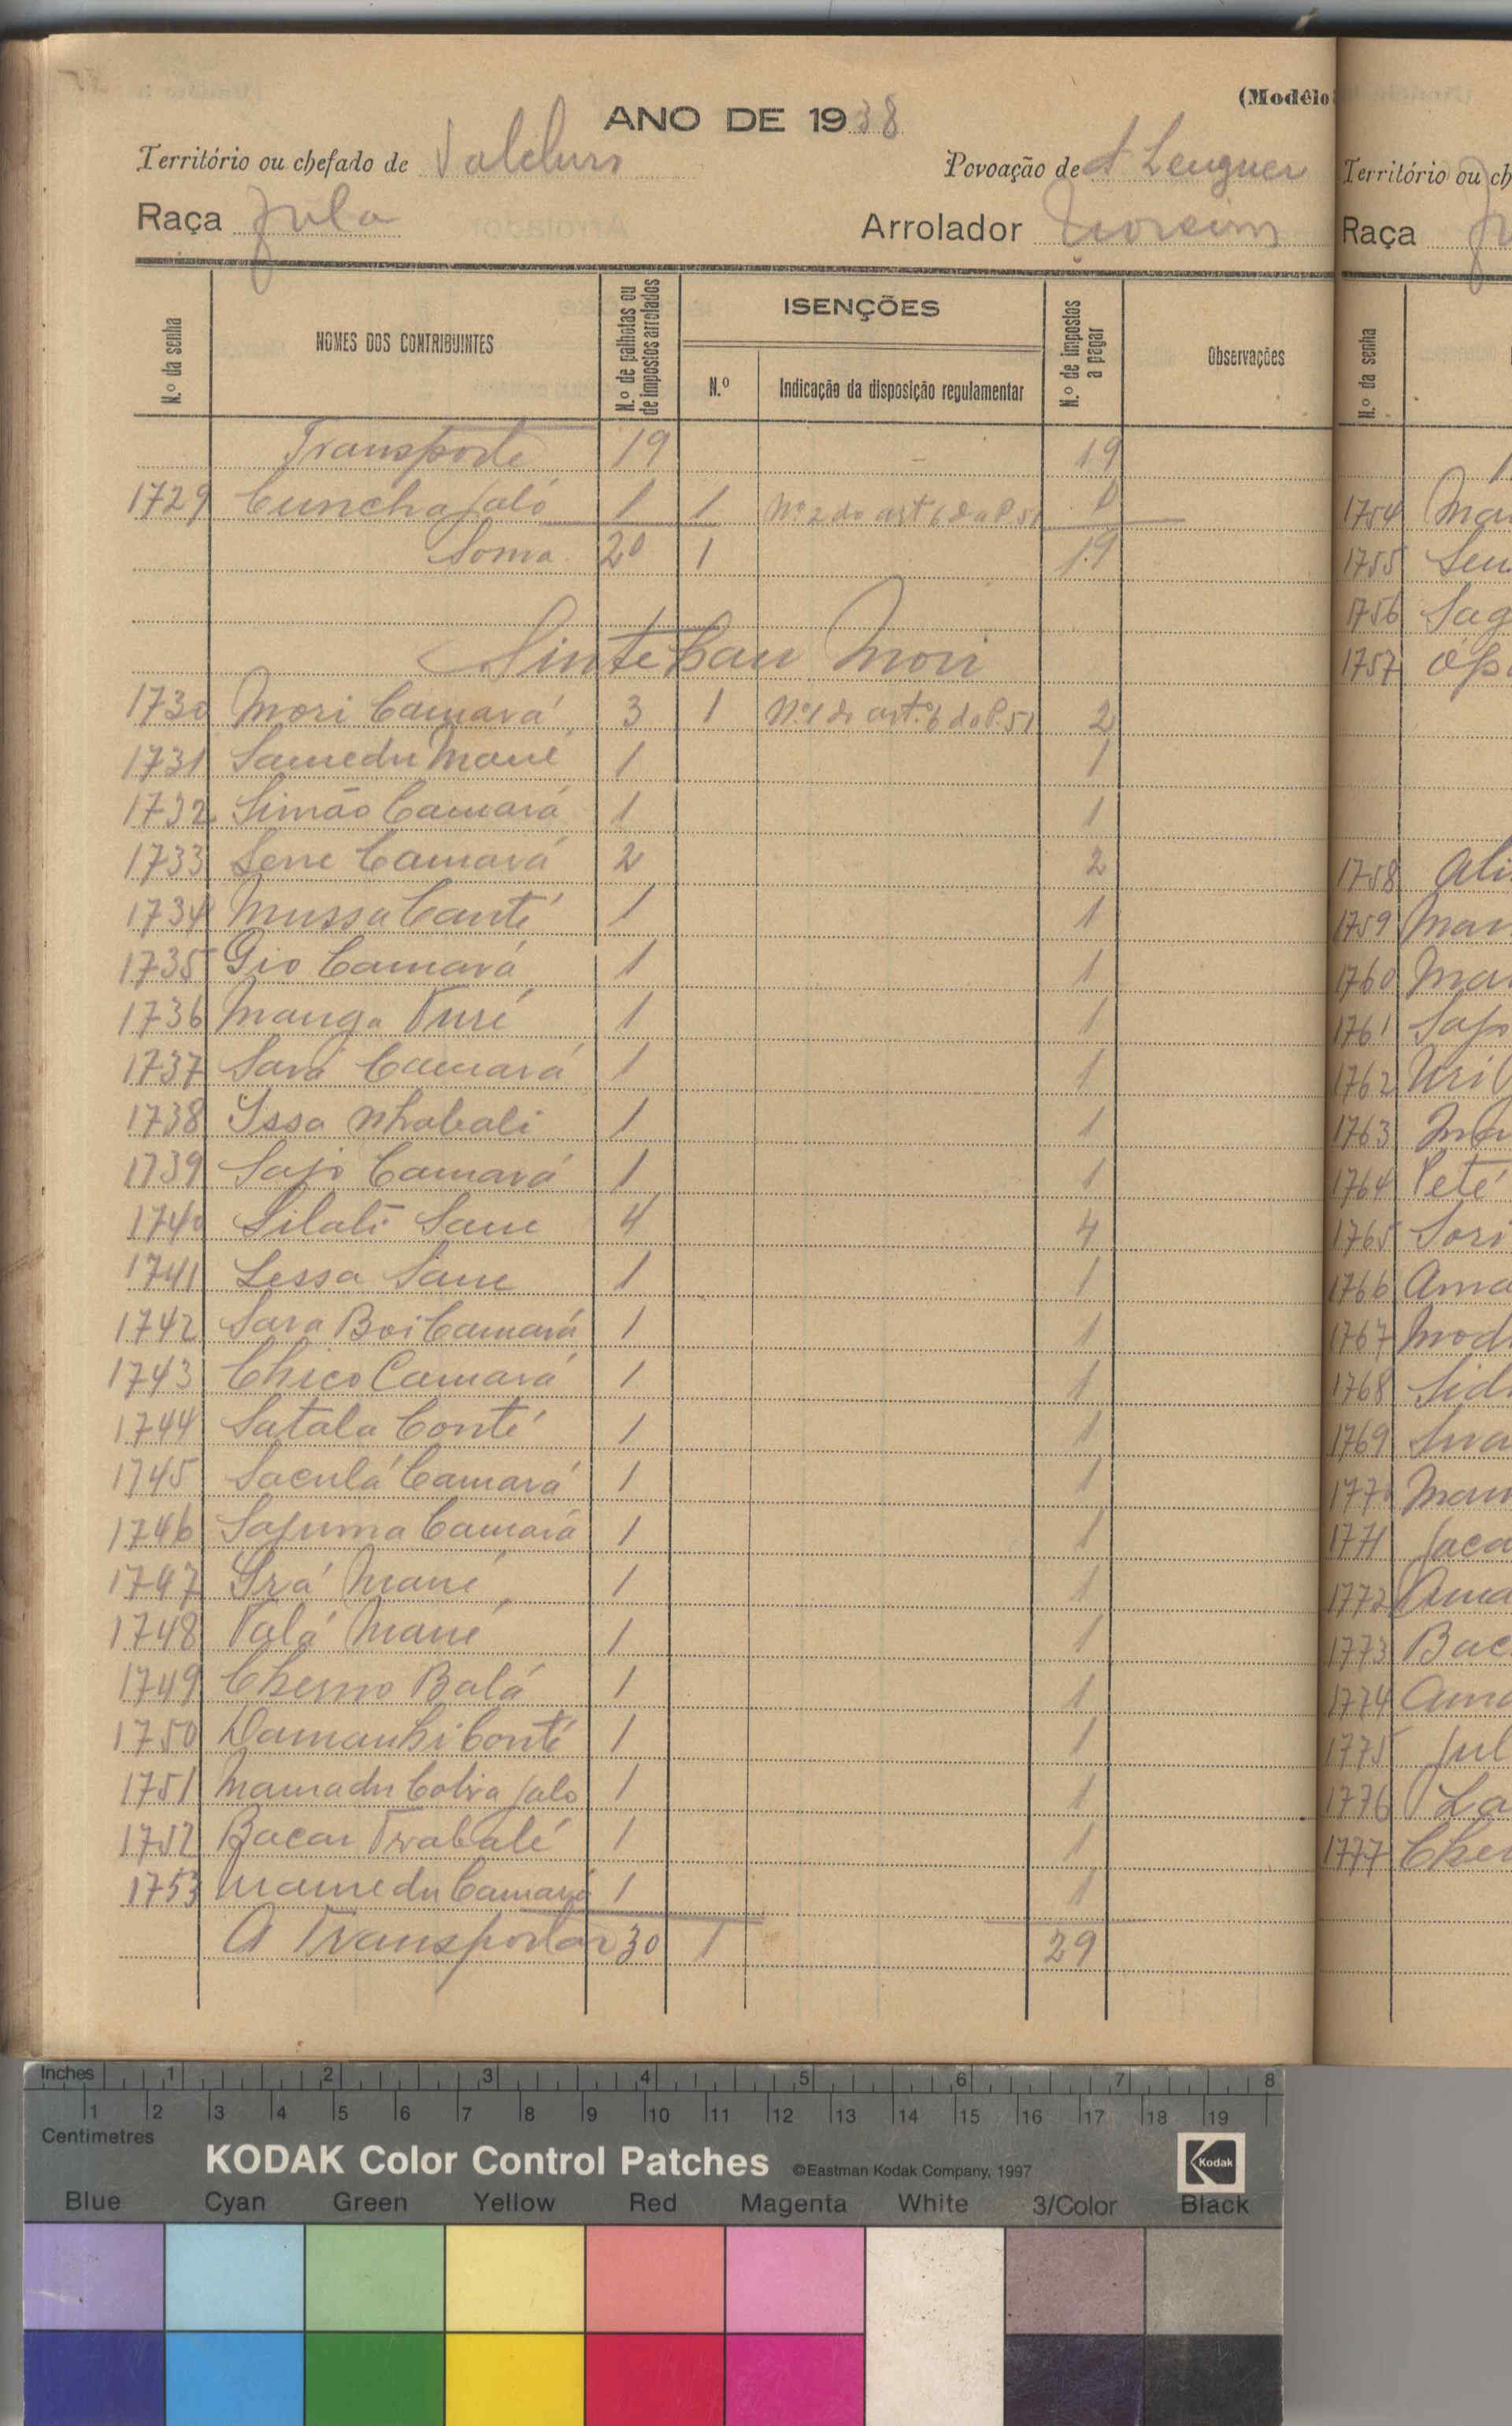 (Modêlo
ANO DE 1938
Território ou chefado de
Povoação de
Raça Fula
Arrolador
N.º da senha
NOMES DOS CONTRIBUINTES
N.º de palhotas ou de impostos arrolados
ISENÇÕES
N.º
Indicação da disposição regulamentar
N.º de impostos a pagar
Observações
Transporte 19 19
1729 Cuncha Jaló 1 1 Nº 2 do art 6 da P. 51 0
Soma 20 1 19
Sinte Cau Mori
1730 Mori Camará 3 1 Nº 1 do art.º 6 da P. 51 2
1731 Samedu Mané 1 1
1732 Simão Camará 1 1
1733 Sene Camará 2 2
1734 Mussa Canté 1 1
1735 Gio Camará 1 1
1736 Manga Turé 1 1
1737 Sará Camará 1 1
1738 Issa Nhabali 1 1
1739 Sajo Camará 1 1
1740 Silati Sane 4 4
1741 Sessa Sane 1 1
1742 Sara Boi Camará 1 1
1743 Chico Camará 1 1
1744 Satala Conté 1 1
1745 Saculá Camará 1 1
1746 Sajuma Camará 1 1
1747 Irá Mané 1 1
1748 Talá Mané 1 1
1749 Cherno Balá 1 1
1750 Damanhi Conté 1 1
1751 Mamadu Jalo 1 1
1752 Bacar 1 1
1753 Mamedu Camará 1 1
A Transportar 30 1 29
Território ou ch
Raça Fu
N.º da senha
1754 Ma
1755 Seu
1756 Sag
1757
1758 Ali
1759 Mar
1760 Ma
1761
1762
1763
1764 Peté
1765 Sori
1766 Ama
1767 Mod
1768 Sid
1769
1770 Mam
1771 Jaca
1772 Ama
1773 Bac
1774 Ama
1775 Jul
1776 La
1777 Cher
Inches 1 2 3 4 5 6 7 8
1 2 3 4 5 6 7 8 9 10 11 12 13 14 15 16 17 18 19
Centimetres
KODAK Color Control Patches ©Eastman Kodak Company, 1997 Kodak
Blue Cyan Green Yellow Red Magenta White 3/Color Black